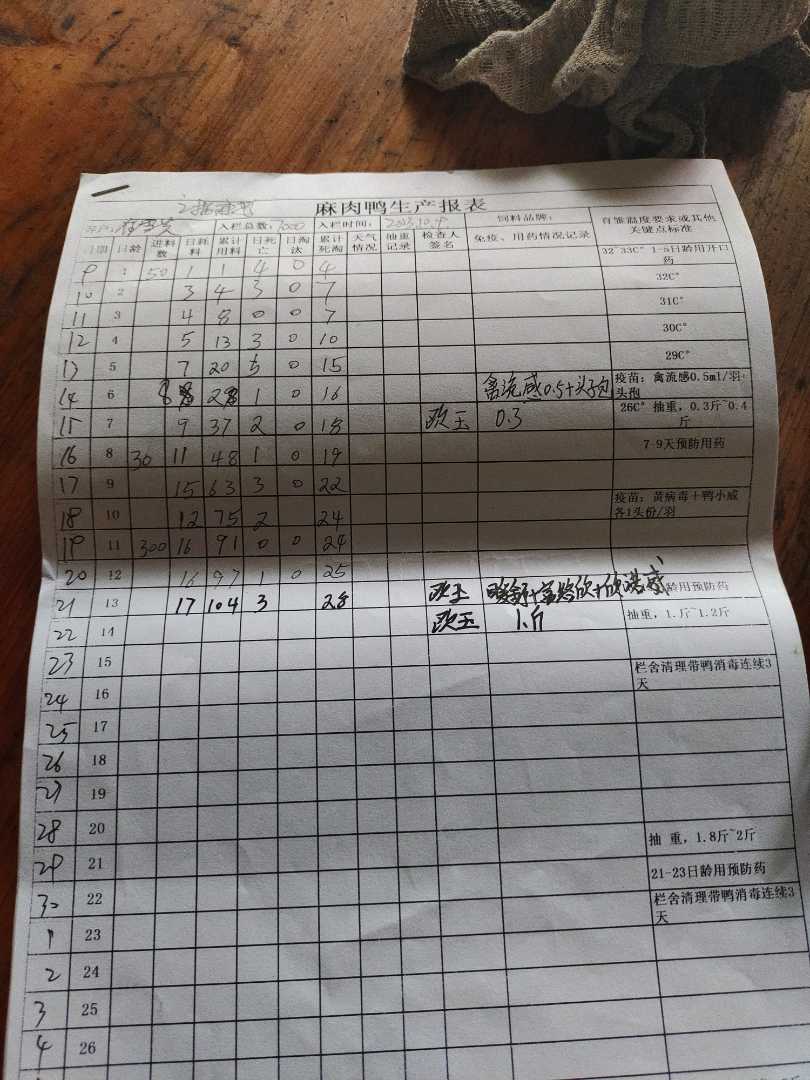 麻肉鸭生产报表
养户: 入栏总数: 3000 入栏时间: 2023.10.9 饲料品牌: 育雏温度要求或其他关键点标准
日期 日龄 进料数 日耗料 累计用料 日死亡 日淘汰 累计死淘 天气情况 抽重记录 检查人签名 免疫、用药情况记录
9 1 50 1 1 4 0 4 32~33C° 1-5日龄用开口药
10 2 3 4 3 0 7 32C°
11 3 4 8 0 0 7 31C°
12 4 5 13 3 0 10 30C°
13 5 7 20 5 0 15 29C°
14 6 8 28 1 0 16 禽流感0.5+头孢 疫苗: 禽流感0.5ml/羽+头孢
15 7 9 37 2 0 18 欧玉 0.3 26C° 抽重, 0.3斤~0.4斤
16 8 30 11 48 1 0 19 7-9天预防用药
17 9 15 63 3 0 22
18 10 12 75 2 24 疫苗: 黄病毒+鸭小威各1头份/羽
19 11 300 16 91 0 0 24
20 12 16 97 1 0 25
21 13 17 104 3 28 欧玉 龄用预防药
22 14 欧玉 1.斤 抽重, 1.斤~1.2斤
23 15 栏舍清理带鸭消毒连续3天
24 16
25 17
26 18
27 19
28 20 抽 重, 1.8斤~2斤
29 21 21-23日龄用预防药
30 22 栏舍清理带鸭消毒连续3天
1 23
2 24
3 25
4 26